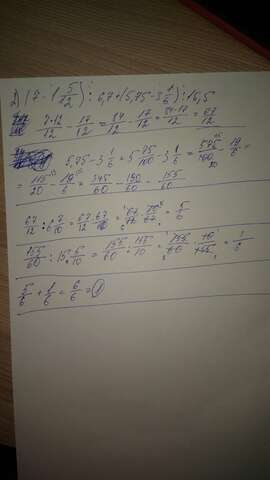 2) (7 - 1 5/12) : 6,7 + (5,75 - 3 1/6) : 15,5
7·12/12 - 17/12 = 84/12 - 17/12 = 84-17/12 = 67/12
5,75 - 3 1/6 = 5 75/100 - 3 1/6 = 575/100 - 19/6 =
= 115/20 - 19/6 = 345/60 - 190/60 - 155/60
67/12 : 6 7/10 = 67/12 · 67/10 = 67/12 · 10/67 = 5/6
155/60 : 15 5/10 = 155/60 : 155/10 = 155/60 · 10/155 = 1/6
5/6 + 1/6 = 6/6 = 1